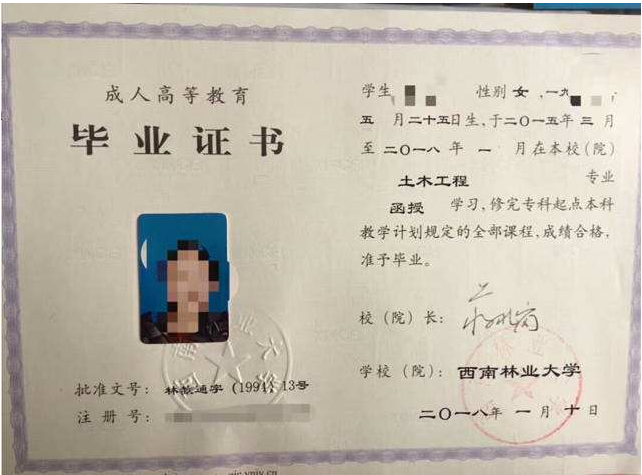 成人高等教育
毕业证书
批准文号：林教通字（1994）13号
注册号：
学生 性别女，一九
五月二十五日生，于二〇一五年三月
至二〇一八年一月在本校（院）
土木工程 专业
函授 学习，修完专科起点本科
教学计划规定的全部课程，成绩合格，
准予毕业。
校（院）长：
学校（院）：西南林业大学
二〇一八年一月十日